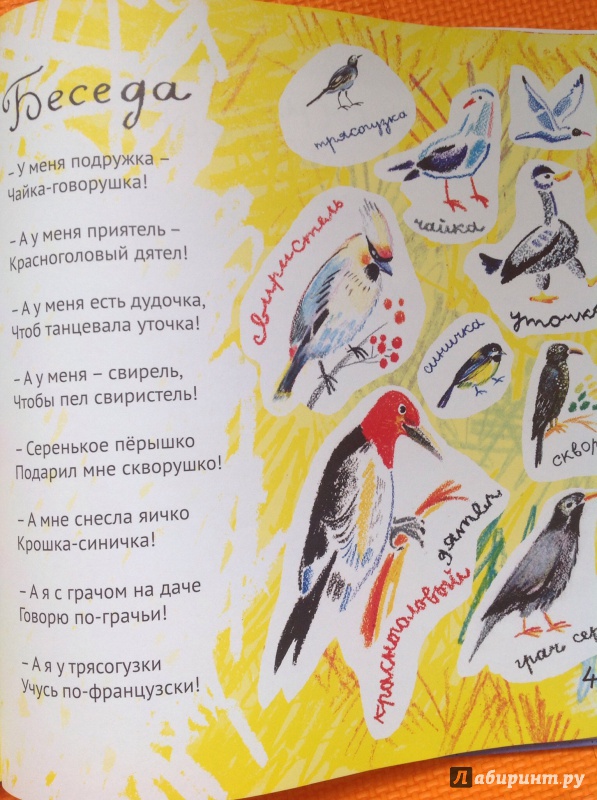 Беседа
– У меня подружка –
Чайка-говорушка!
– А у меня приятель –
Красноголовый дятел!
– А у меня есть дудочка,
Чтоб танцевала уточка!
– А у меня – свирель,
Чтобы пел свиристель!
– Серенькое пёрышко
Подарил мне скворушко!
– А мне снесла яичко
Крошка-синичка!
– А я с грачом на даче
Говорю по-грачьи!
– А я у трясогузки
Учусь по-французски!
трясогузка
чайка
свиристель
уточка
синичка
сквор
красноголовый
дятел
грач сер
4
Лабиринт.ру